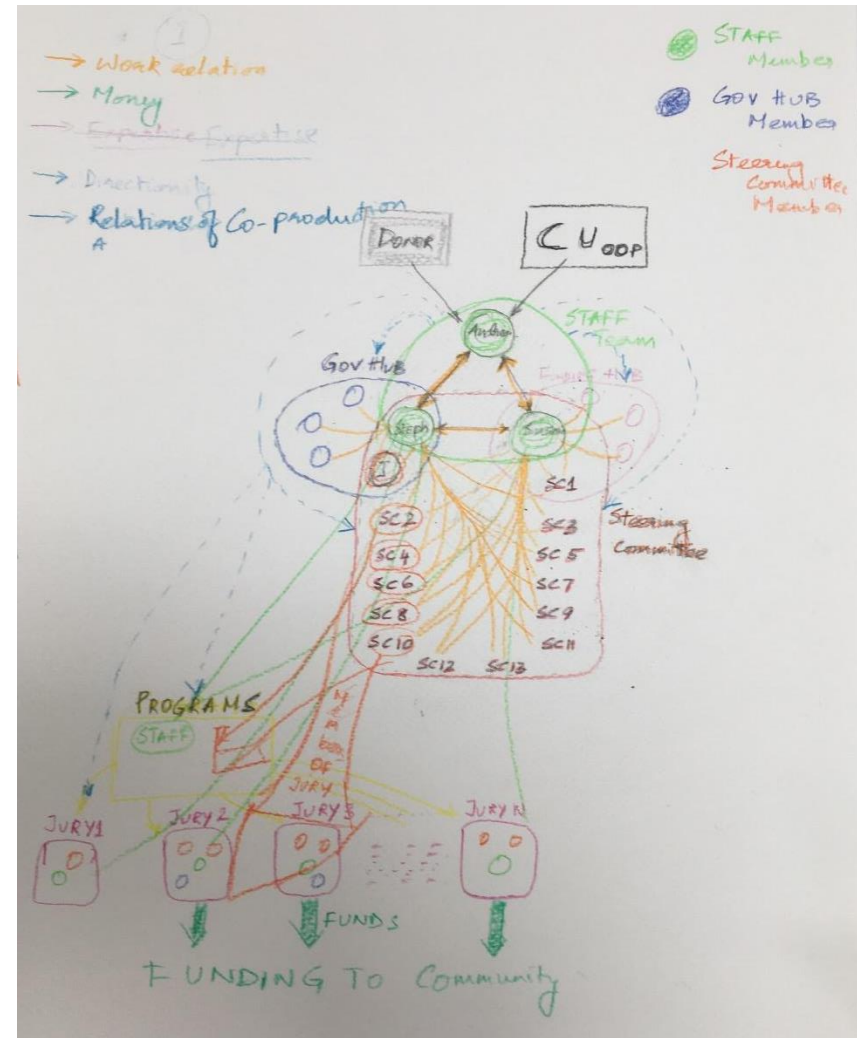 1
Work relation
Money
Expertise Expertise
Directionity
Relations of Co-production
A
STAFF
Member
GOV HUB
Member
Steering
Committee
Member
DONOR
CU ODP
STAFF
Team
GOV HUB
HUB
Steph
Susan
I
SC1
SC2
SC3
SC4
SC5
SC6
SC7
SC8
SC9
SC10
SC11
SC12
SC13
Steering
Committee
PROGRAMS
STAFF
OF
JURY
JURY1
JURY 2
JURY 3
JURY N
FUNDS
FUNDING TO Community